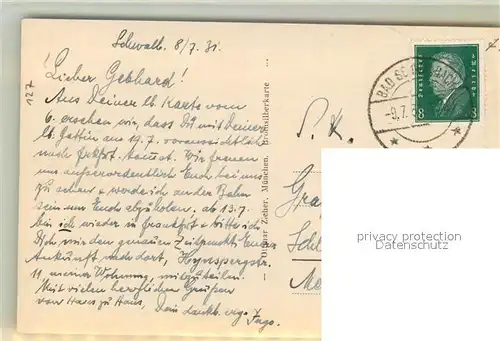 Schwalb. 8/7. 31.
127
Lieber Gebhard!
Aus Deiner lb Karte vom
6. ersehen wir, dass Du mit Deiner
lb. Gattin am 19.7. voraussichtlich
nach Frkfrt. kommst. Wir freuen
uns ausserordentlich Euch bei uns
zu sehen & werde ich an der Bahn
sein um Euch abzuholen. ab 13.7.
bin ich wieder in Frankfurt & bitte ich
Dich mir den genauen Zeitpunkt Eurer
Ankunft nach dort, Hynspergstr.
11, meiner Wohnung, mitzuteilen.
Mit vielen herzlichen Grüssen
von Haus zu Haus, Dein dankb.
Ingo.
Ottmar Zieher, München. Bromsilberkarte
P. K.
BAD
-9.7.
DEUTSCHES REICH
8 8
Gra
Schl
privacy protection
Datenschutz